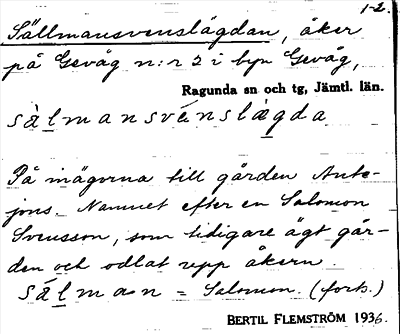 1-2.
Sällmansvenslägdan, åker
på Gevåg n:r 2 i byn Gevåg,
Ragunda sn och tg, Jämtl. län.
sàlmansvénslàgda
På inägorna till gården Ante-
jons. Namnet efter en Salomon
Svensson, som tidigare ägt går-
den och odlat upp åkern.
sálman = Salomon. (fork.)
BERTIL FLEMSTRÖM 1936.